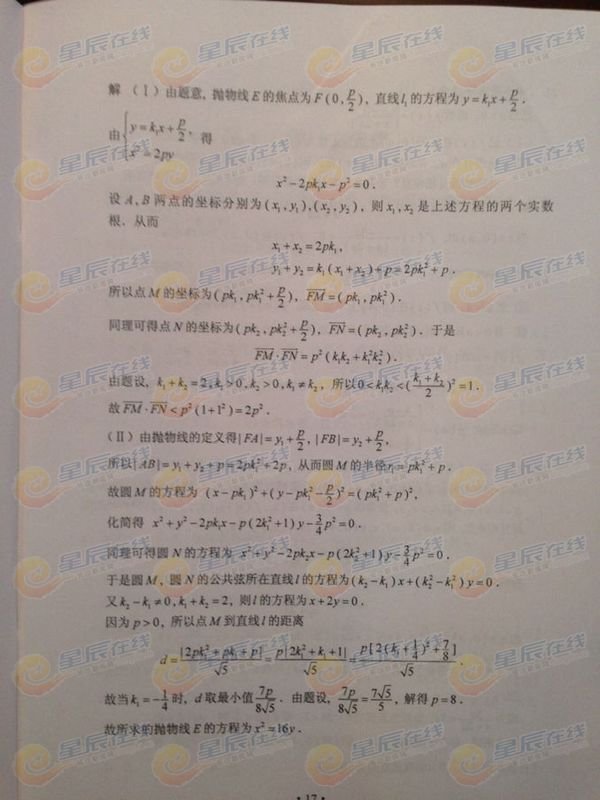 解 (Ⅰ) 由题意, 抛物线 E 的焦点为 F(0, p/2), 直线 l₁ 的方程为 y=k₁x+p/2.
由{y=k₁x+p/2, x²=2py 得
x²-2pk₁x-p²=0.
设 A,B 两点的坐标分别为(x₁,y₁),(x₂,y₂), 则 x₁,x₂ 是上述方程的两个实数
根. 从而
x₁+x₂=2pk₁,
y₁+y₂=k₁(x₁+x₂)+p=2pk₁²+p.
所以点 M 的坐标为(pk₁, pk₁²+p/2), FM=(pk₁, pk₁²).
同理可得点 N 的坐标为(pk₂, pk₂²+p/2), FN=(pk₂, pk₂²). 于是
FM·FN=p²(k₁k₂+k₁²k₂²).
由题设, k₁+k₂=2, k₁>0, k₂>0, k₁≠k₂, 所以0<k₁k₂<((k₁+k₂)/2)²=1.
故FM·FN<p²(1+1²)=2p².
(Ⅱ) 由抛物线的定义得|FA|=y₁+p/2, |FB|=y₂+p/2,
所以|AB|=y₁+y₂+p=2pk₁²+2p, 从而圆 M 的半径r₁=pk₁²+p.
故圆 M 的方程为 (x-pk₁)²+(y-pk₁²-p/2)²=(pk₁²+p)²,
化简得 x²+y²-2pk₁x-p(2k₁²+1)y-3/4p²=0.
同理可得圆 N 的方程为 x²+y²-2pk₂x-p(2k₂²+1)y-3/4p²=0.
于是圆 M, 圆 N 的公共弦所在直线 l 的方程为(k₂-k₁)x+(k₂²-k₁²)y=0.
又 k₂-k₁≠0, k₁+k₂=2, 则 l 的方程为 x+2y=0.
因为 p>0, 所以点 M 到直线 l 的距离
d=|2pk₁²+pk₁+p|/√5=p|2k₁²+k₁+1|/√5=p[2(k₁+1/4)²+7/8]/√5.
故当 k₁=-1/4 时, d 取最小值 7p/8√5. 由题设, 7p/8√5=7√5/5, 解得 p=8.
故所求的抛物线 E 的方程为 x²=16y.
·17·
星辰在线